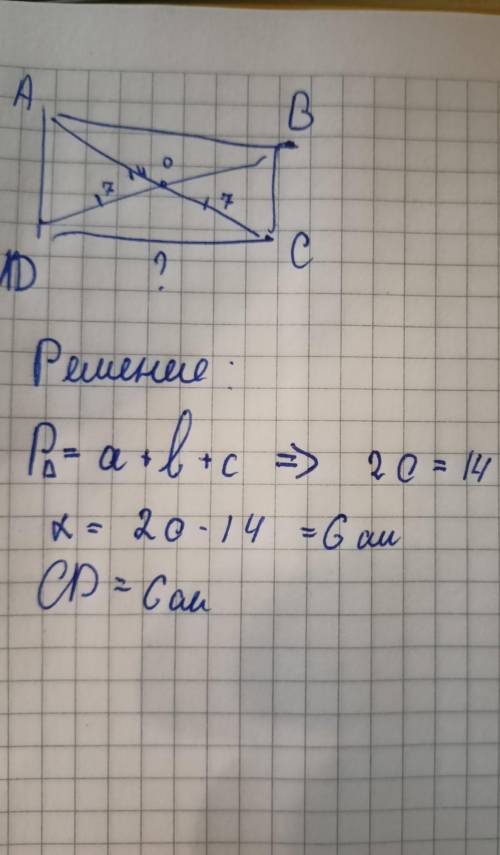 A
B
O
7
7
D
C
?
Решение:
P△ = a + b + c => 20 = 14
x = 20 - 14 = 6 см
CD = 6 см